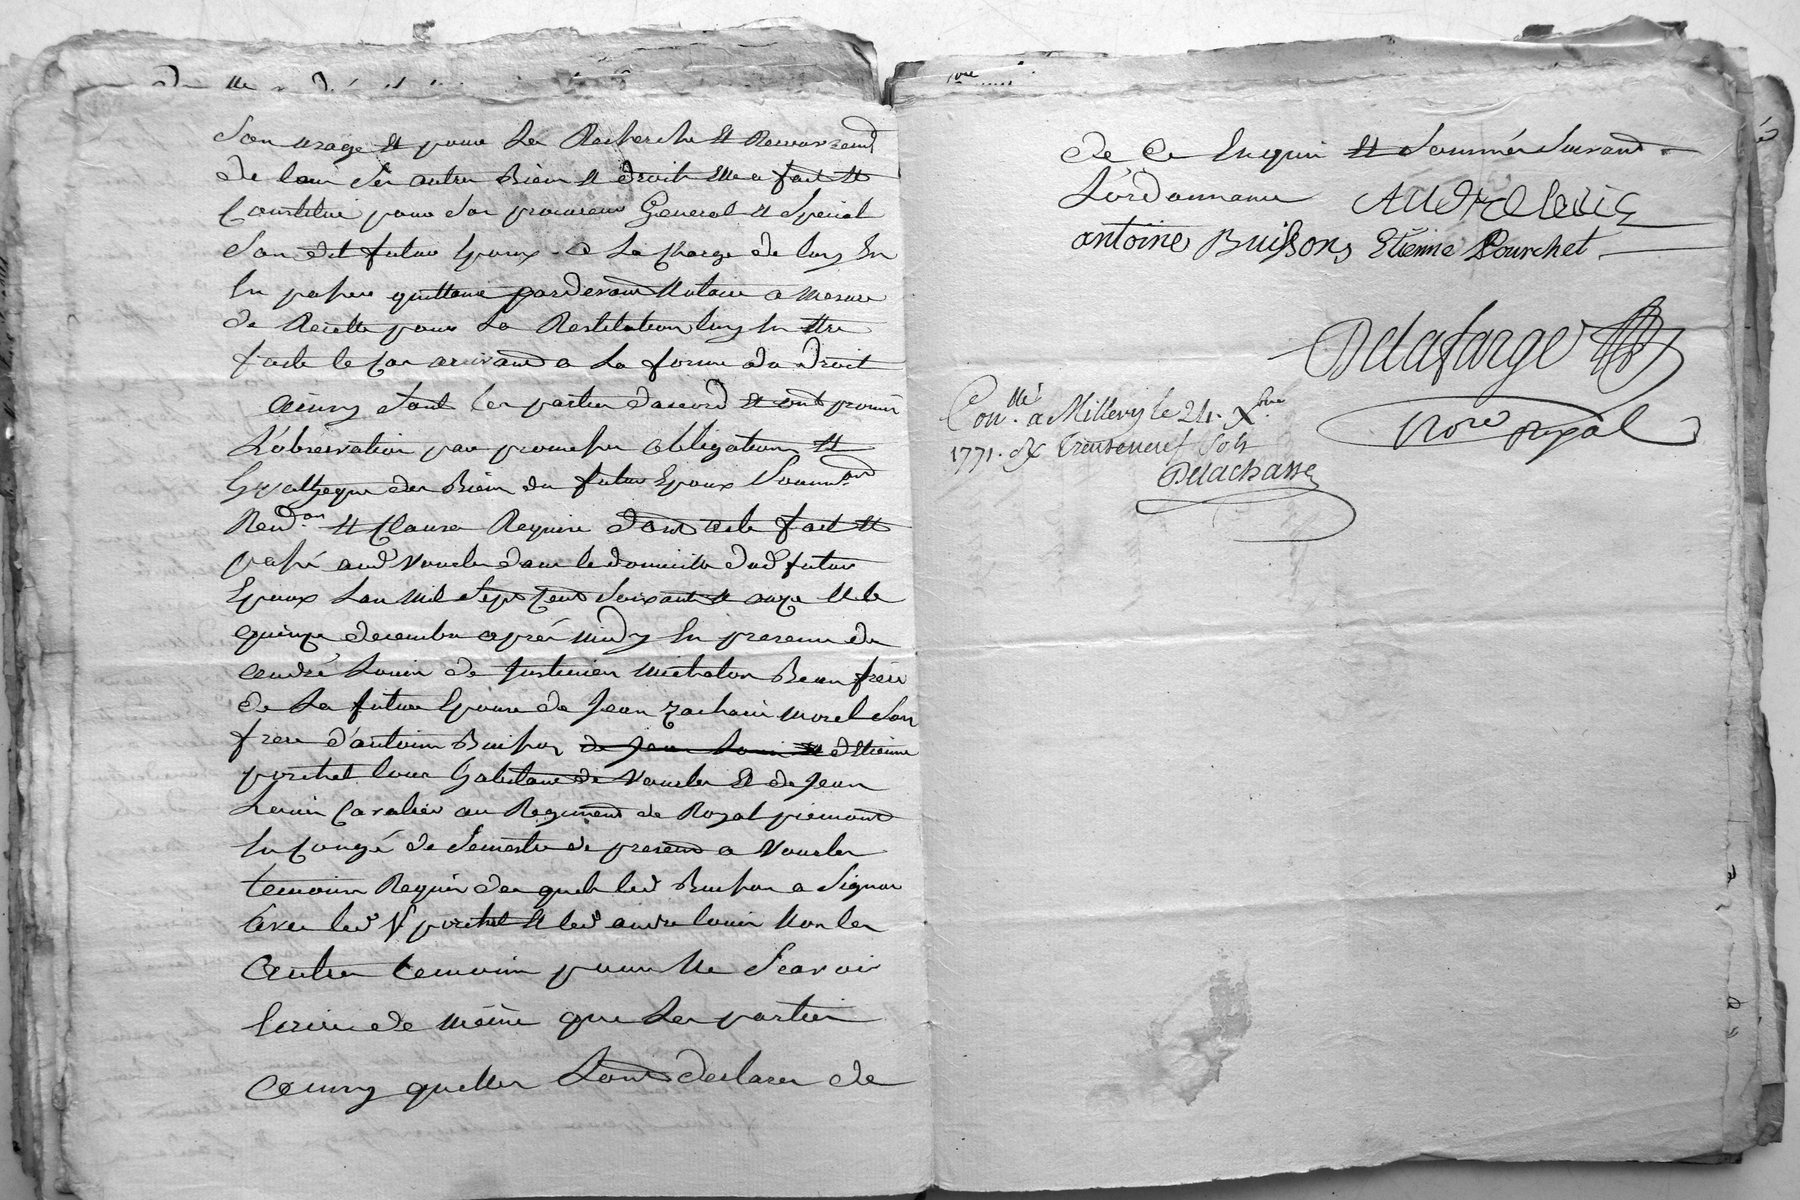 Son usage et pour la Recherche et Recouvremt
de tous ses autres Biens et droits Elle a fait et
Constitué pour son procureur General et Special
Son dit futur Epoux a la charge de luy en
En passer quittance pardevant Notaire a mesure
de Recette pour La Restitution luy en Etre
faite le Cas arrivant a La forme du Droit
Ainsy sont les parties d'accord et ont promis
L'observation par promesses obligations et
hypotheque des Biens du futur Epoux Soumon
Renon et Clauses Requises dont acte fait et
passé aud Voucles dans le domicille dud futur
Epoux Lan mil Sept Cent Soixante et onze Et le
quinze decembre aprés midy En presence de
andré Louis de justinien michalon Beau frere
de La future Epouse de Jean Zacharie morel Son
frere d'antoine Buisson de Jean Louis et d'Etienne
porchet tous habitans de Voucles Et de Jean
Louis Cavalier au Regiment de Royal piemont
En Congé de Semestre de present a Voucles
temoins Requis des quels led Buisson a Signé
avec led porchet Et led andré louis Non les
Autres temoins pour Ne Scavoir
Ecrire de même que Les parties
Ainsy quelles L'ont declaré de
de Ce Enquis Et Sommés Suivant
L'ordonnance
antoine Buissons Etienne Pourchet
Delafarge
Nore Royal
Conllé a Millery le 24 Xbre
1771. Rx Trenteneuf Sols
Delachasse